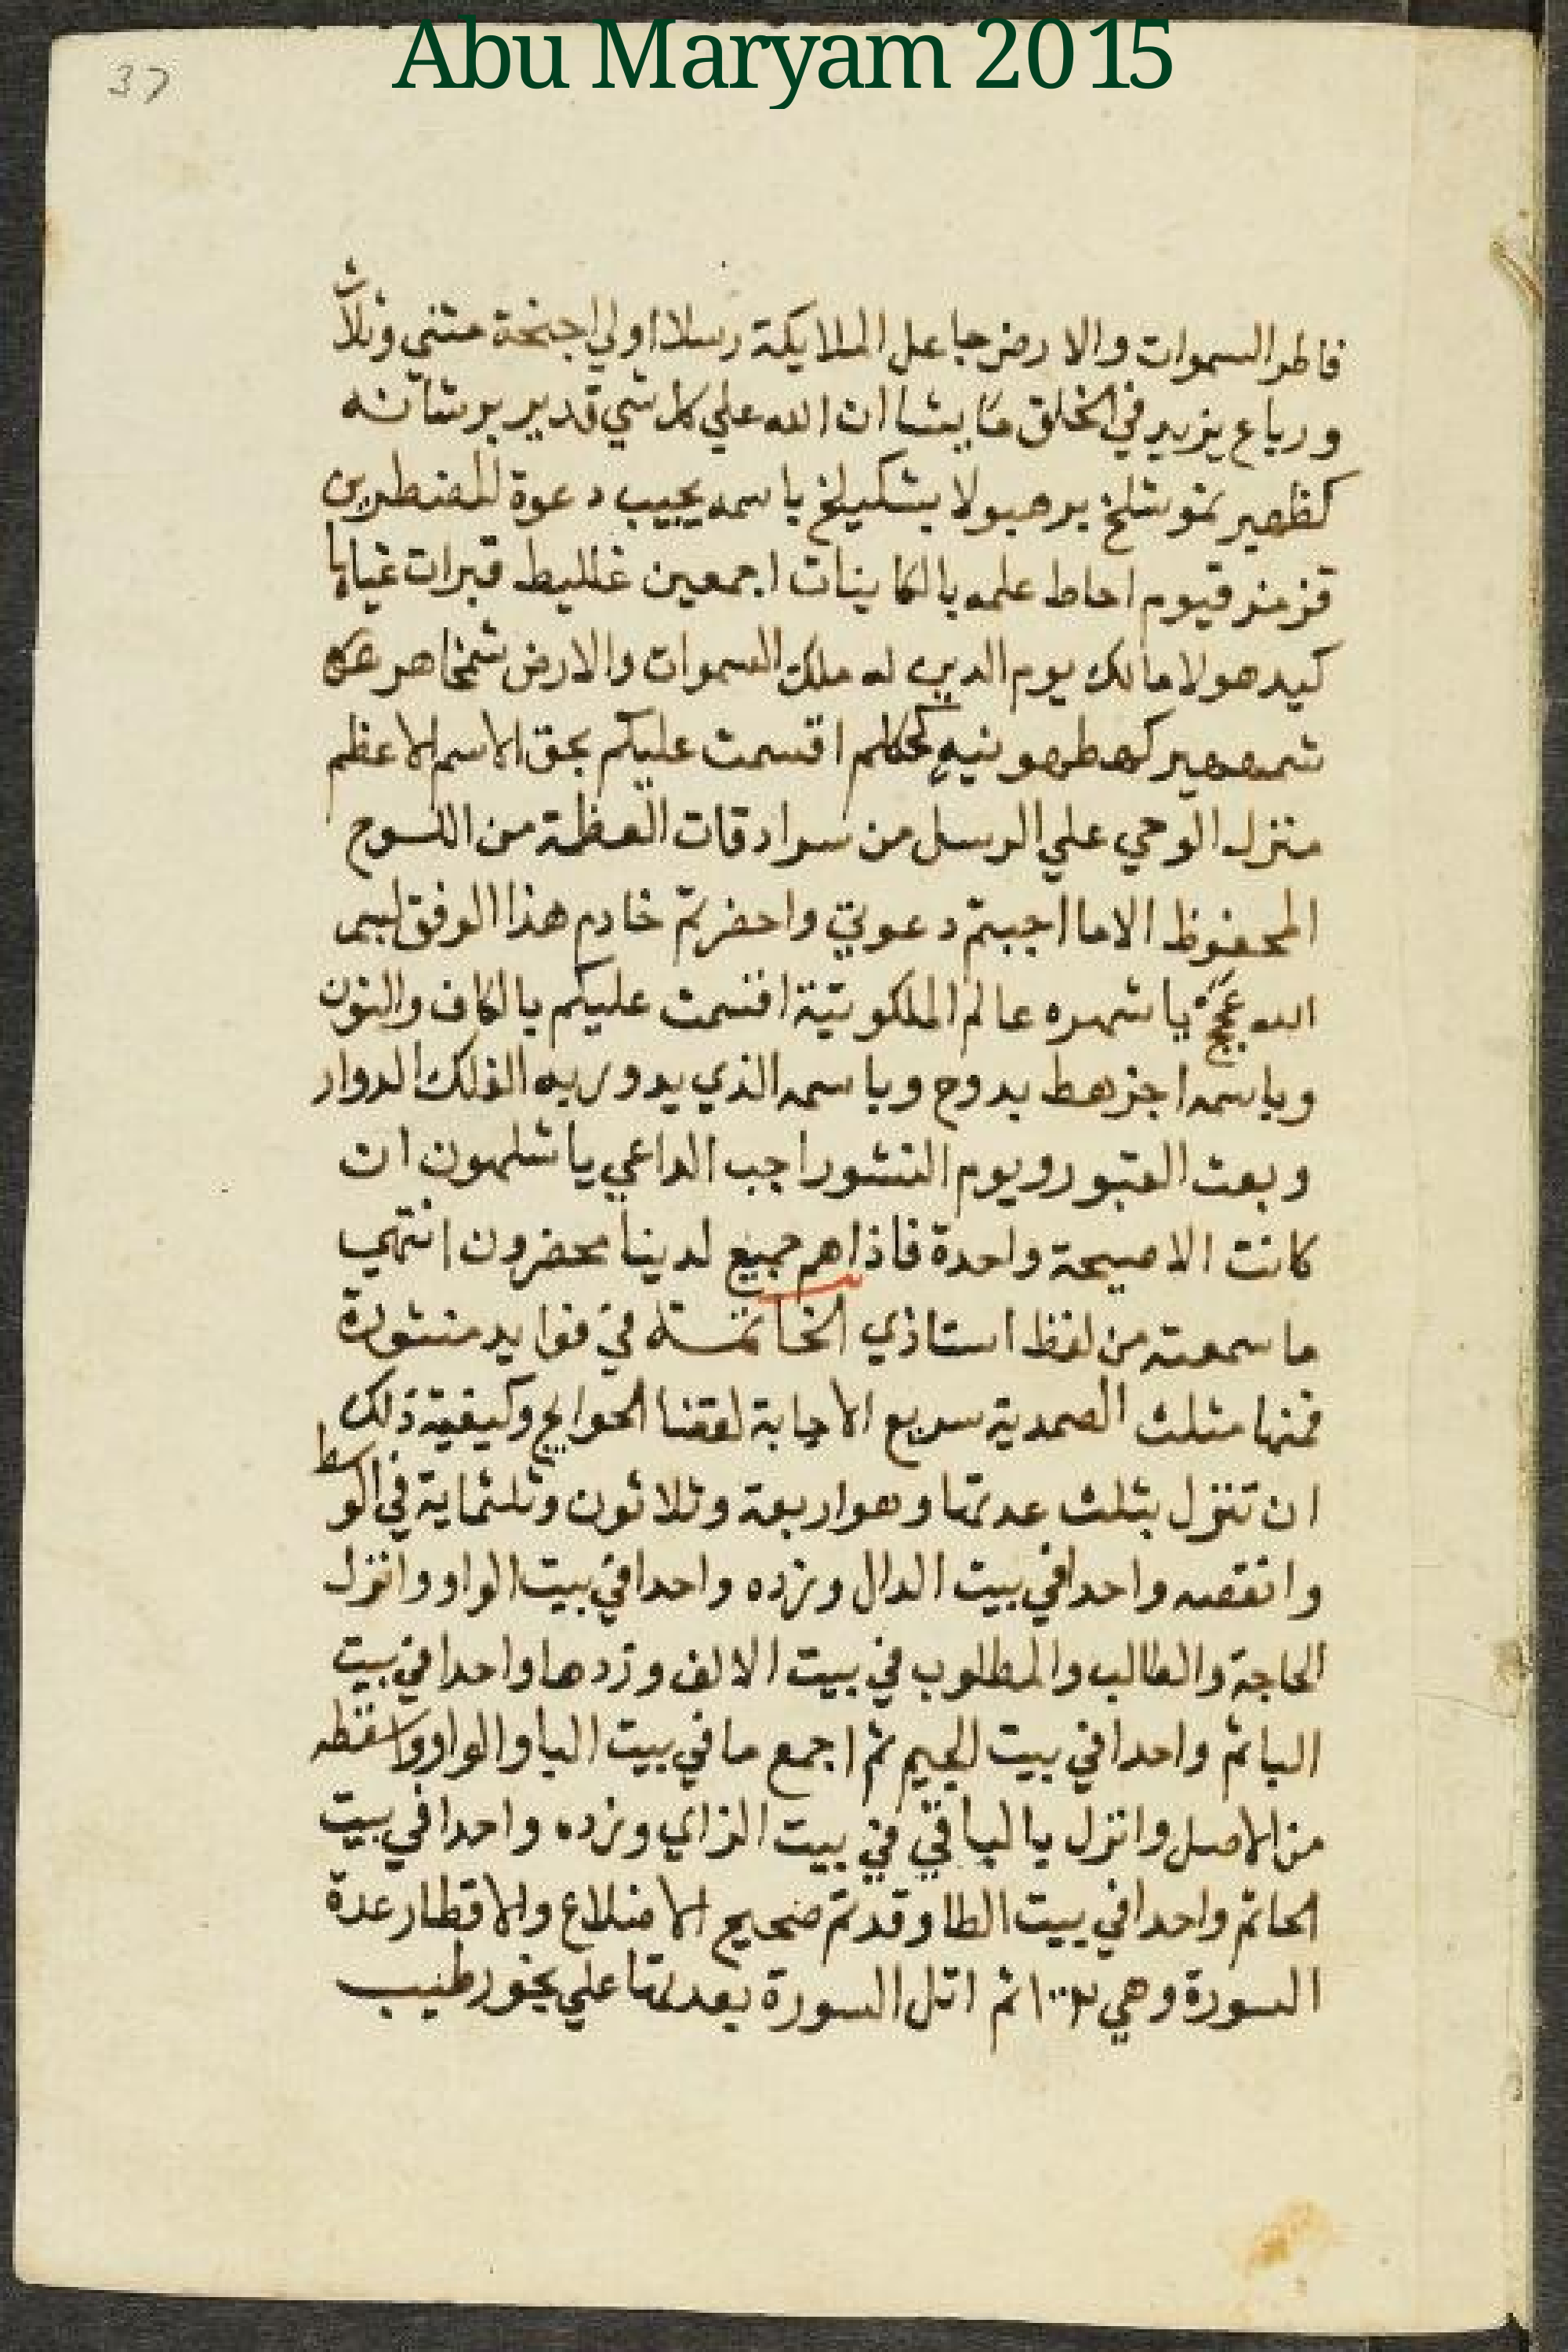 Abu Maryam 2015
37
فاطر السموات والارض جاعل الملايكة رسلا اولي اجنحة مثني وثلاث
ورباع يزيد في الخلق ما يشا ان الله علي كل شي قدير برشانه
كظهير نموشلخ برهيولا بشكيلخ باسمه يجيب دعوة المضطرين
قزمز قيوم احاط علمه بالكاينات اجمعين غلليط قبرات غياها
كيدهولا مالك يوم الدين له ملك السموات والارض شمخاهر
شمهاهير اقسمت عليكم بحق الاسم الاعظم
منزل الوحي علي الرسل من سرادقات العظمة من اللوح
المحفوظ الاما اجبتم دعوتي واحضرتم خادم هذا الوفق
الله يا عالم الملكوتية اقسمت عليكم بالكاف والنون
وباسمه اجزهط بدوح وباسمه الذي يدور به الفلك الدوار
وبعث القبور ويوم النشور اجب الداعي يا شلمهون ان
كانت الا صيحة واحدة فاذا هم جميع لدينا محضرون انتهي
ما سمعته من لفظ استاذي الخاتمة في فوايد منثورة
فمنها مثلث الصمدية سريع الاجابة لقضا الحوايج وكيفية ذلك
ان تنزل بثلث عدتها وهو اربعة وثلاثون وثلثماية في الوسط
وانقصه واحدا في بيت الدال وزده واحدا في بيت الواو وانزل
الحاجة والطالب والمطلوب في بيت الالف وزدها واحدا في بيت
البا ثم واحدا في بيت الجيم ثم اجمع ما في بيت البا والواو واسقطه
من الاصل وانزل بالباقي في بيت الزاي وزده واحدا في بيت
الحا ثم واحدا في بيت الطا وقد تم صحيح الاضلاع والاقطار عدة
السورة وهي ١٠٠٢ ثم اتل السورة بعدتها علي بخور طيب